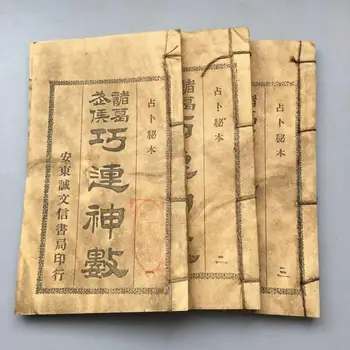 占卜秘本
一
諸葛
武侯
巧連神數
安東誠文信書局印行
占卜秘本
二
諸葛
占卜秘本
三